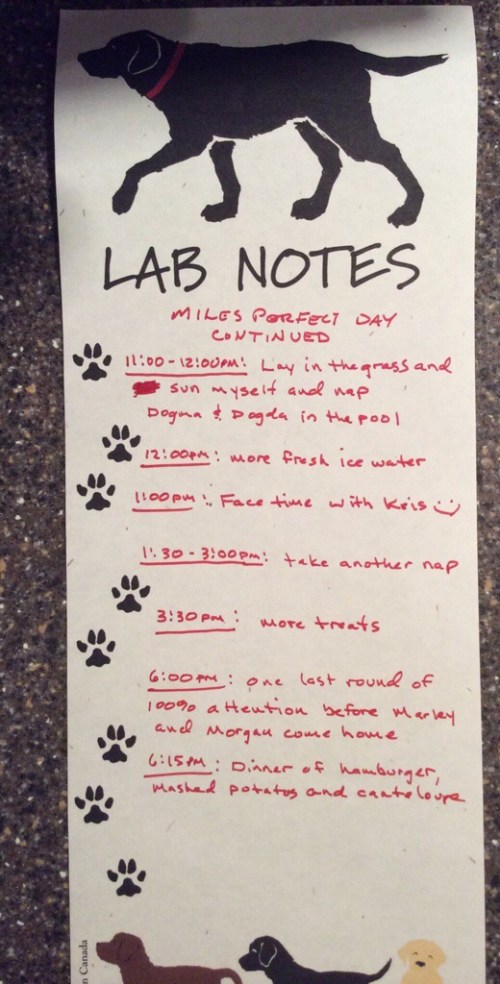 LAB NOTES
MILES PERFECT DAY
CONTINUED
11:00 - 12:00PM: Lay in the grass and
sun myself and nap
Dogma & Dogda in the pool
12:00pm: more fresh ice water
1:00pm: Face time with Kris
1:30 - 3:00pm: take another nap
3:30pm: more treats
6:00pm: one last round of
100% attention before Marley
and Morgan come home
6:15PM: Dinner of hamburger,
Mashed potatos and canteloupe
n Canada